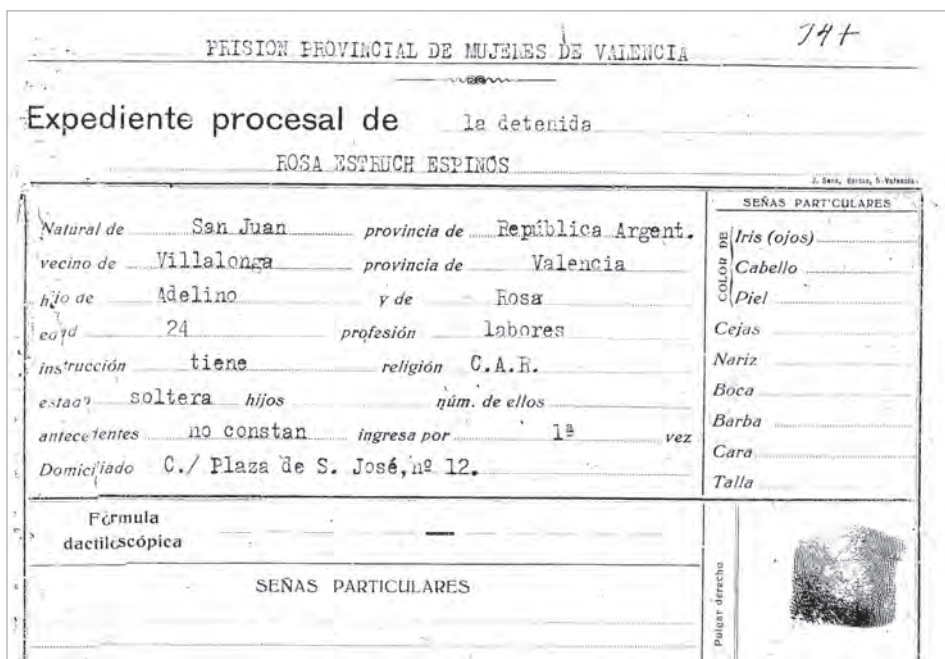 747
PRISION PROVINCIAL DE MUJERES DE VALENCIA
Expediente procesal de la detenida
ROSA ESTRUCH ESPINOS
J. Sanz,
Natural de San Juan provincia de República Argent.
vecino de Villalonga provincia de Valencia
hijo de Adelino y de Rosa
edad 24 profesión labores
instrucción tiene religión C.A.R.
estado soltera hijos núm. de ellos
antecedentes no constan ingresa por 1ª vez
Domiciliado C./ Plaza de S. José, nº 12.
SEÑAS PARTICULARES
COLOR DE
Iris (ojos)
Cabello
Piel
Cejas
Nariz
Boca
Barba
Cara
Talla
Fórmula
dactiloscópica
SEÑAS PARTICULARES
Pulgar derecho